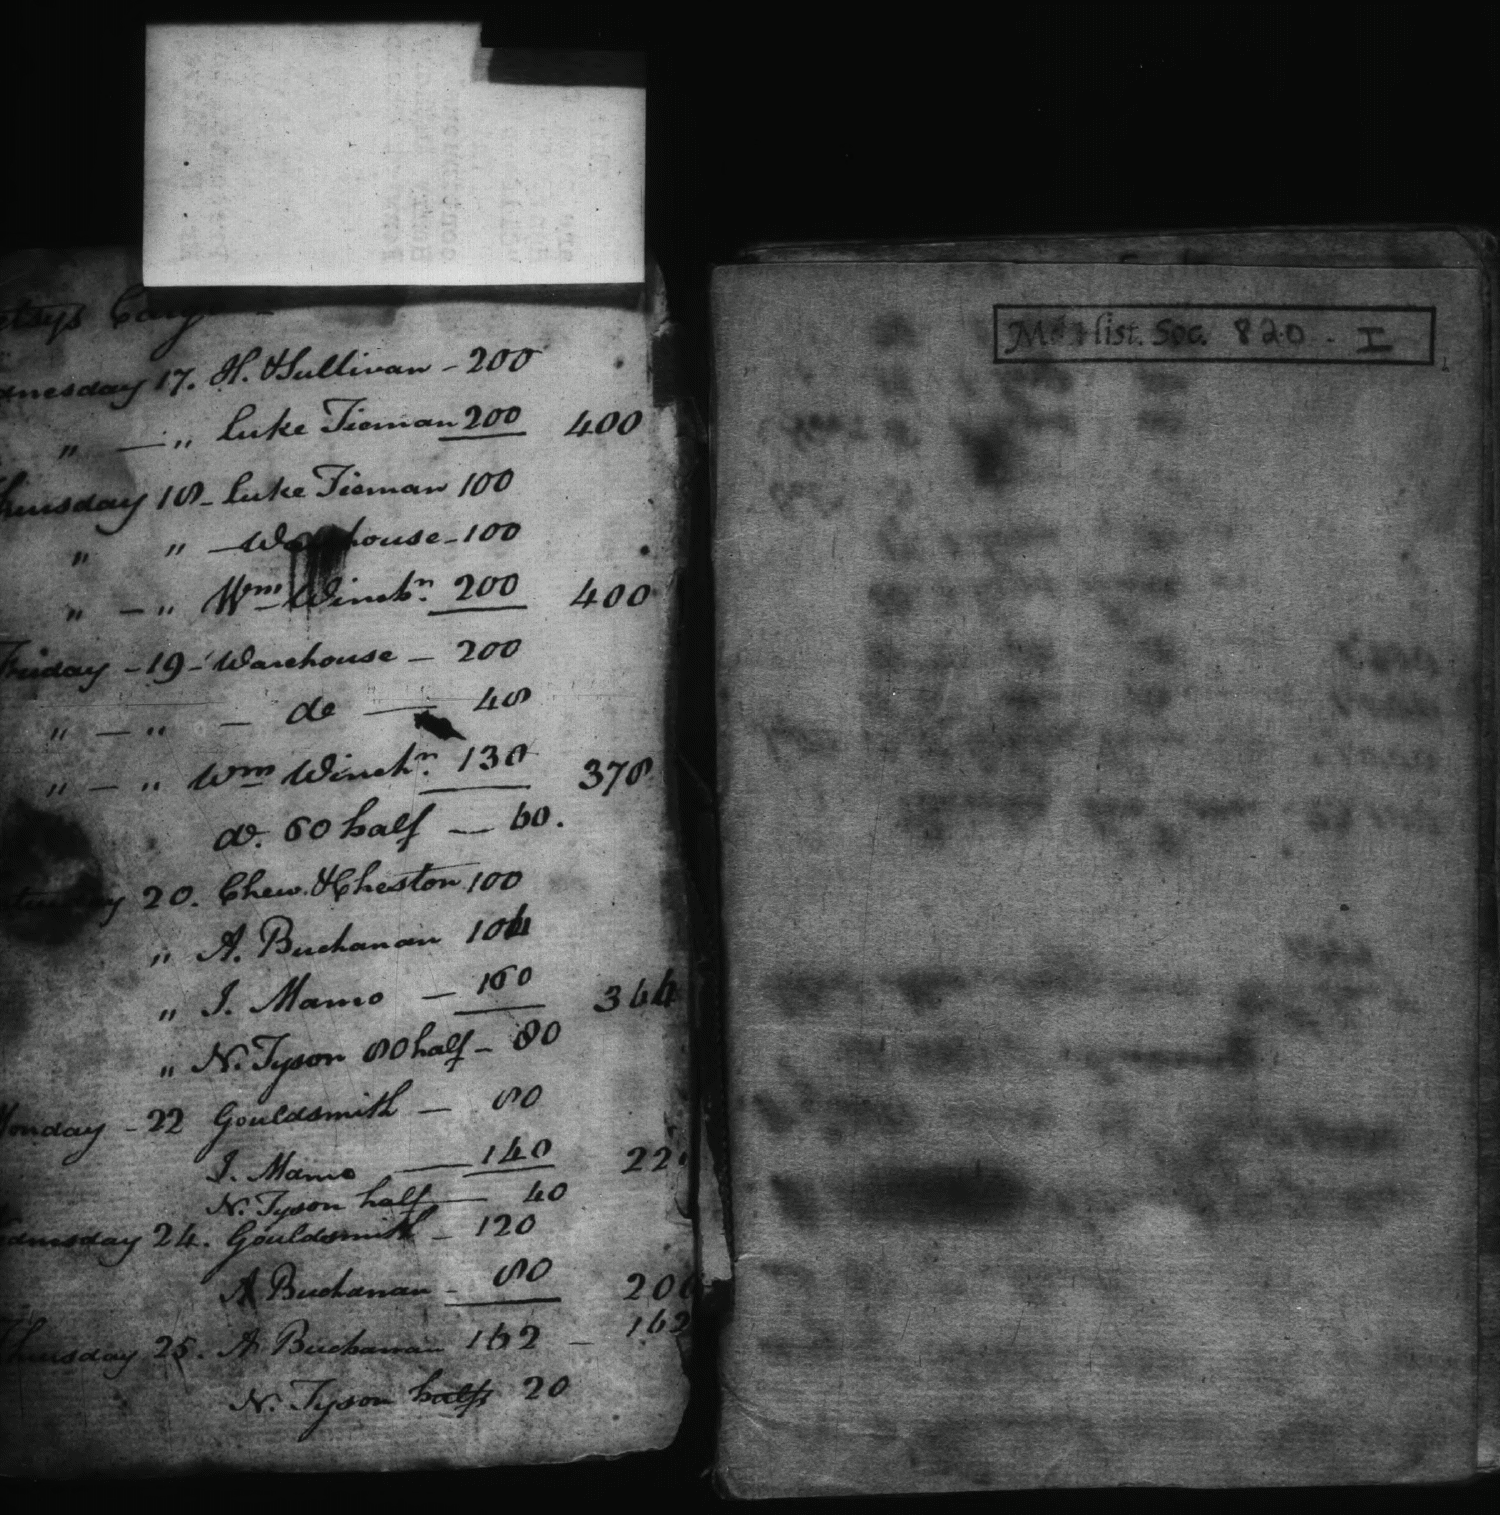 etsys Cargo
dnesday 17. H. & Sullivan - 200
" — " Luke Tieman 200 400
hursday 18 - Luke Tieman 100
" " — Warehouse - 100
" — " Wm Winchn. 200 400
Friday - 19 - Warehouse — 200
" — " — do — 48
" — " Wm Winchn. 130 378
do. 60 half — 60.
aturday 20. Chew & Cheston 100
" A. Buchanan 104
" I. Manro — 160 364
" N. Tyson 80 half - 80
Monday - 22 Gouldsmith — 80
I. Manro — 140 22
N. Tyson half — 40
ednesday 24. Gouldsmith - 120
A Buchanan - 80 200
Thursday 25. A Buchanan 162 — 162
N. Tyson halfs 20
Md. Hist. Soc. 820. I